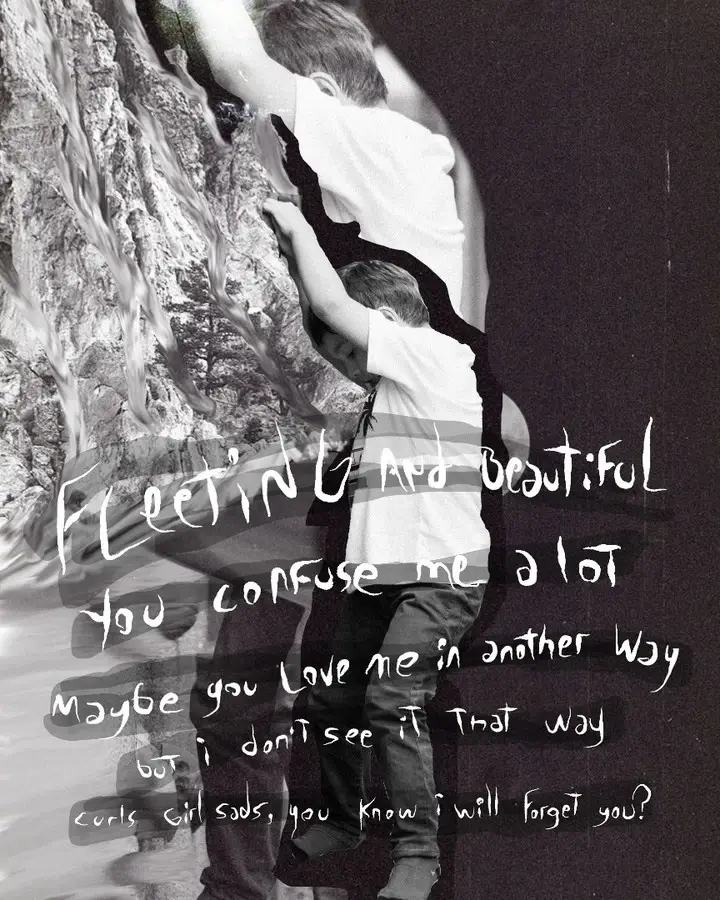 FLeeTiNG And BeautiFuL
you conFuse me a loT
Maybe you Love me in another Way
buT i don'T see iT ThaT way
curls Girl sads, you Know i will Forget you?